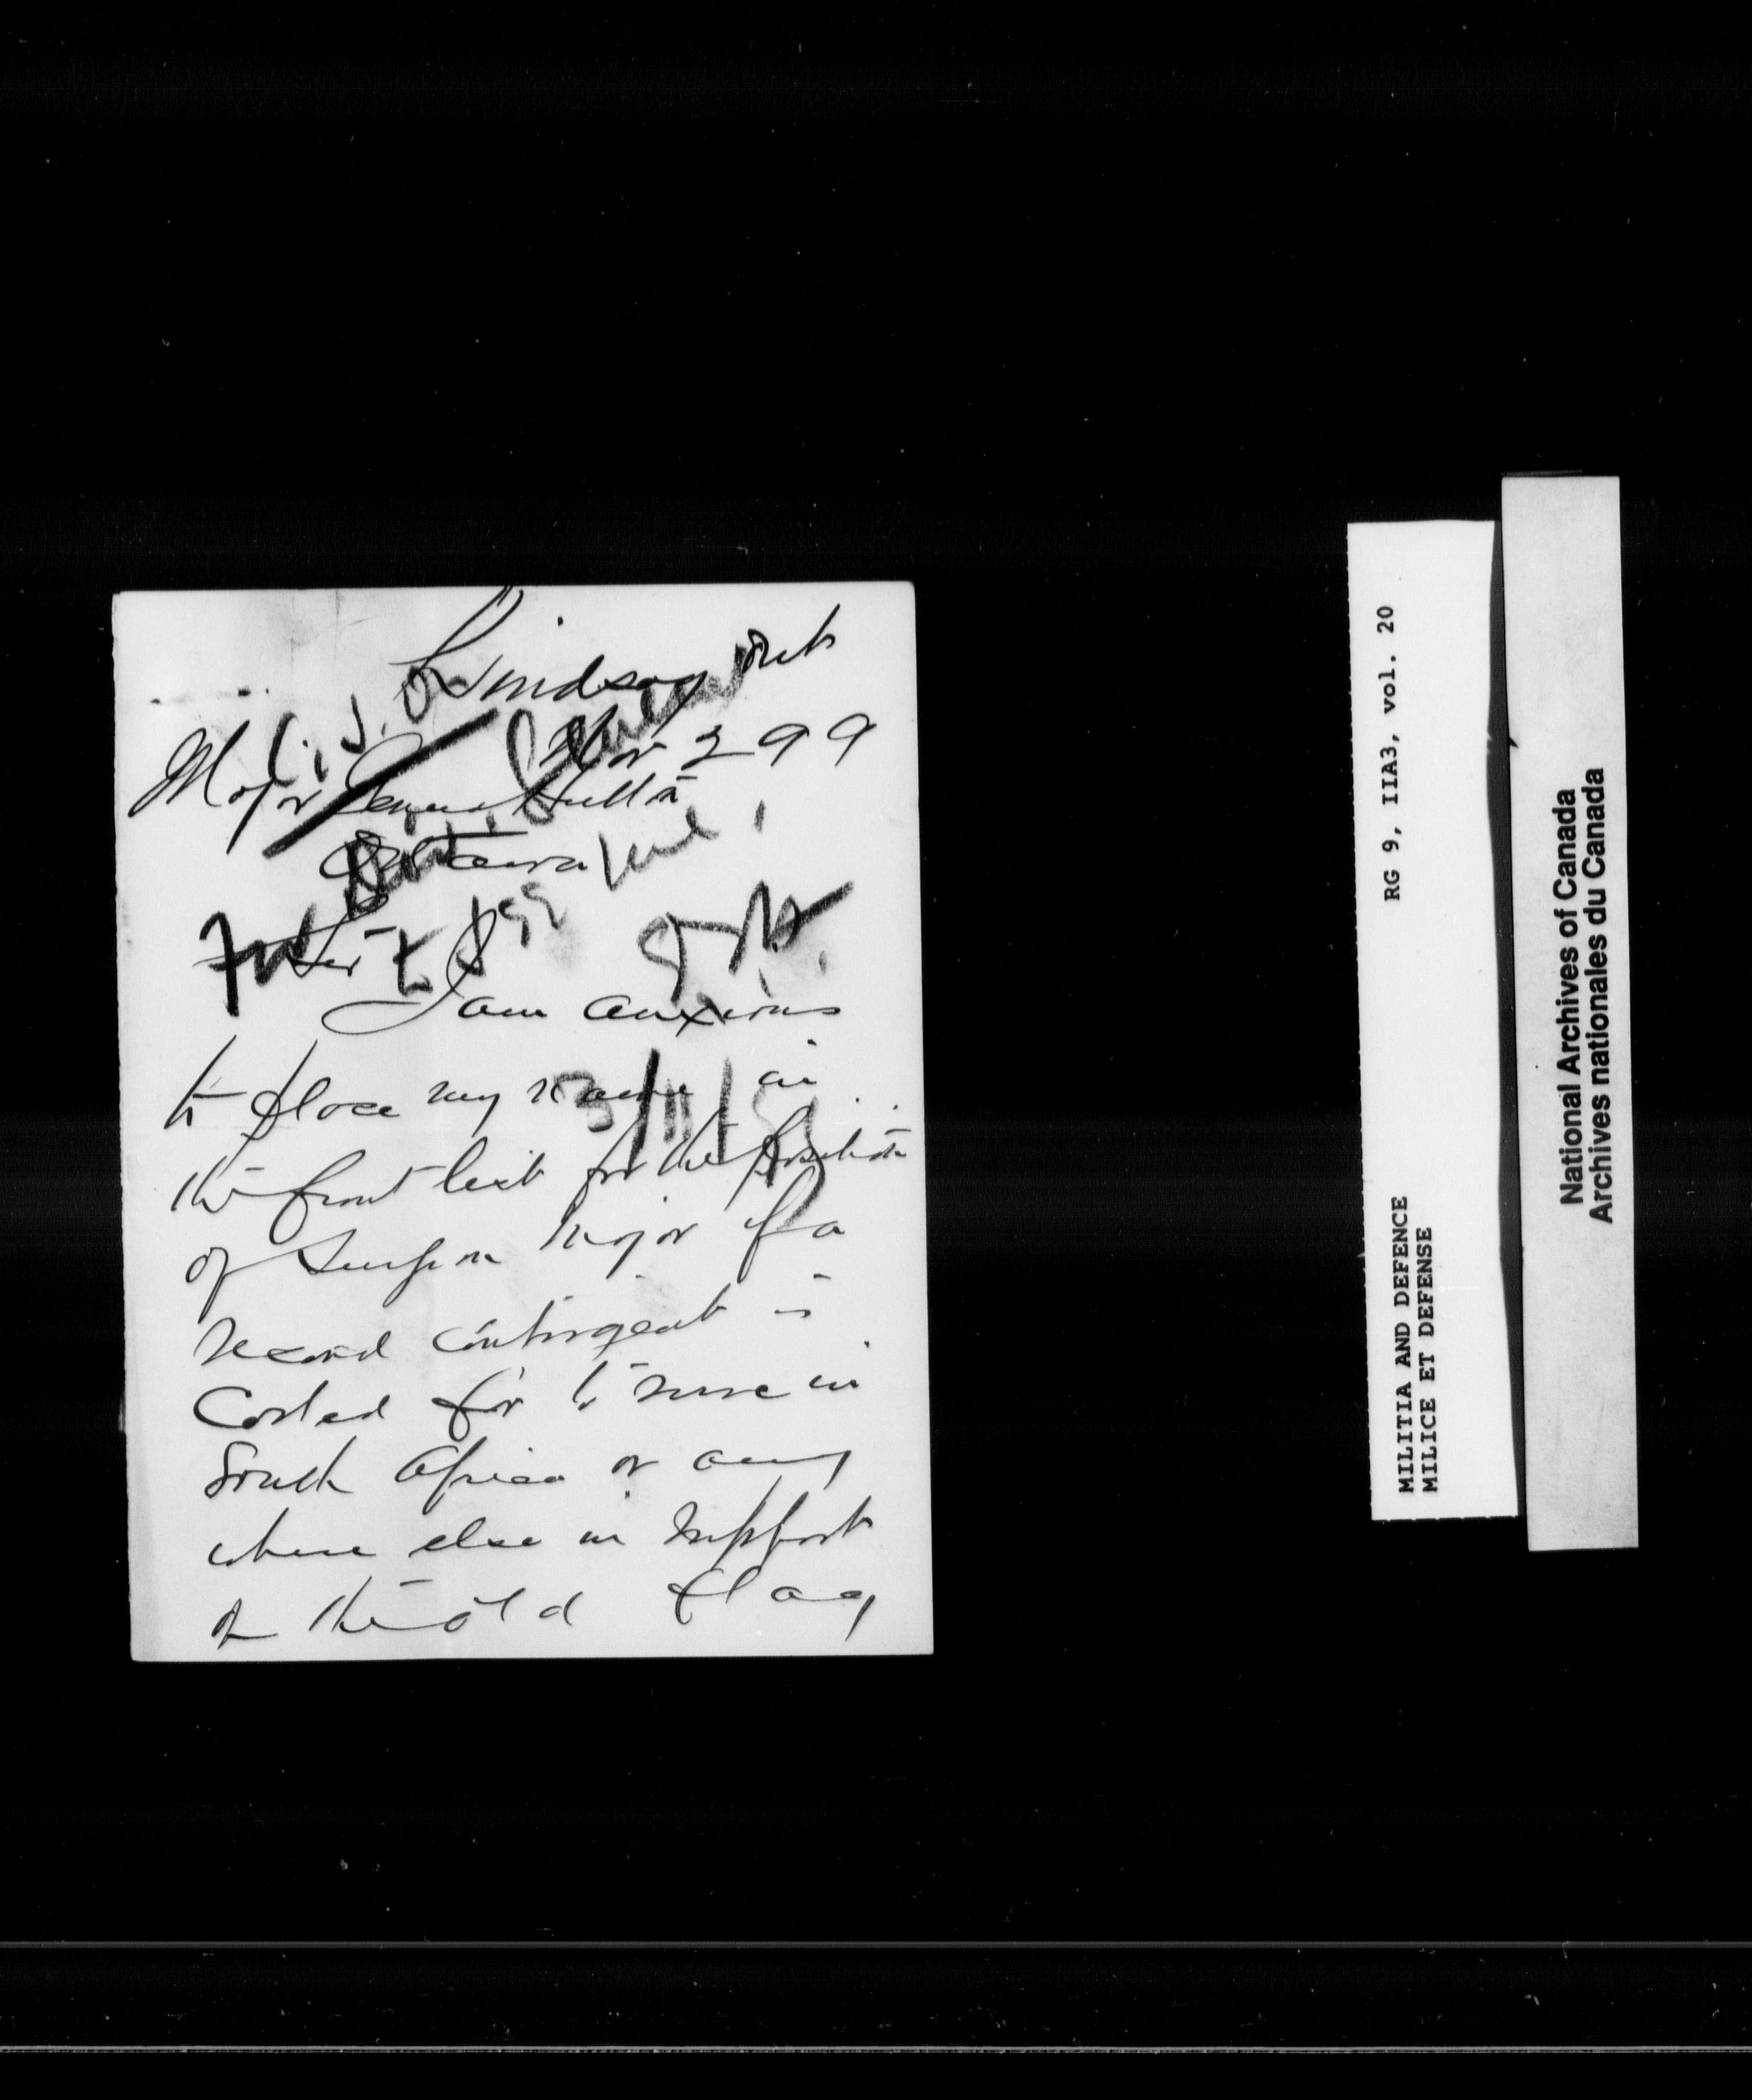 Lindsay Ont
Nov 2 99
Major General Hutton
Ottawa
Sir
I am anxious
to place my name in
the front list for the position
of Surgeon Major if a
second contingent is
Called for to serve in
South Africa or any
where else in support
of the old Flag
3/11/
RG 9, IIA3, vol. 20
MILITIA AND DEFENCE
MILICE ET DEFENSE
National Archives of Canada
Archives nationales du Canada